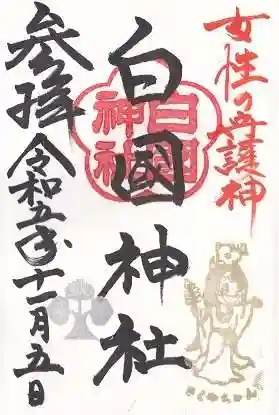 女性の守護神
白國神社
白國神社
参拝
令和五年十一月五日
さくやちゃん